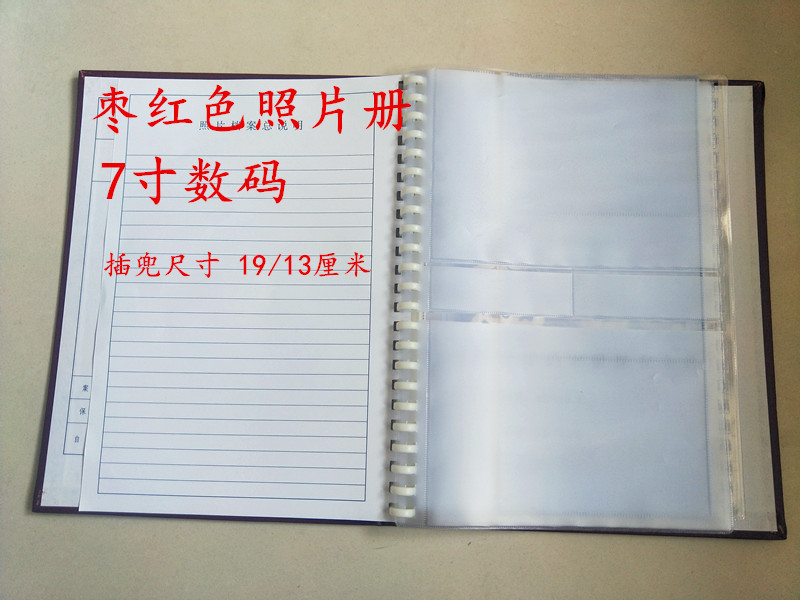 枣红色照片册
照片档案总说明
7寸数码
插兜尺寸 19/13厘米
案
保
自